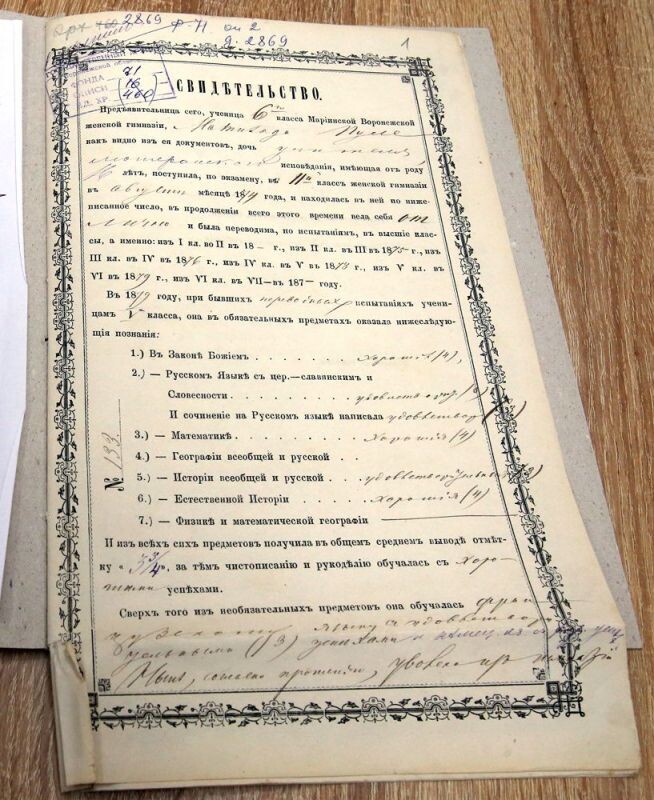 2869
Ф-Н оп 2
д. 2869
1
ФОНДА 71
ОПИСИ 16
ЕД. ХР. 460
СВИДѢТЕЛЬСТВО.
Предъявительница сего, ученица 6го класса Маріинской Воронежской
женской гимназіи,
какъ видно изъ ея документовъ, дочь
исповѣданія, имѣющая отъ роду
лѣтъ, поступила, по экзамену, въ IIй классъ женской гимназіи
въ Августѣ мѣсяцѣ 1874 года, и находилась въ ней по ниже-
писанное число, въ продолженіи всего этого времени вела себя от
лично и была переводима, по испытаніямъ, въ высшіе клас-
сы, а именно: изъ I кл. во II въ 18 – г., изъ II кл. въ III въ 1875 г., изъ
III кл. въ IV въ 1876 г., изъ IV кл. въ V въ 1878 г., изъ V кл. въ
VI въ 1879 г., изъ VI кл. въ VII – въ 187– году.
Въ 1879 году, при бывшихъ переводныхъ испытаніяхъ учени-
цамъ V класса, она въ обязательныхъ предметахъ оказала нижеслѣдую-
щія познанія:
1.) Въ Законѣ Божіемъ . . . . . . . хорошія (4),
2.) — Русскомъ Языкѣ съ цер.—славянскимъ и
Словесности . . . . . . . (3)
И сочиненіе на Русскомъ языкѣ написала
3.) — Математикѣ . . . . . . . . хорошія (4)
4.) — Географіи всеобщей и русской . .
5.) — Исторіи всеобщей и русской . . . . удовлетворительныя (3)
6.) — Естественной Исторіи . . . . хорошія (4)
7.) — Физикѣ и математической географіи
№ 133
И изъ всѣхъ сихъ предметовъ получила въ общемъ среднемъ выводѣ отмѣт-
ку « 3 3/4 », за тѣмъ чистописанію и рукодѣлію обучалась съ хоро-
шими успѣхами.
Сверхъ того изъ необязательныхъ предметовъ она обучалась фран
цузскому языку съ удовлетвори
тельными (3) успѣхами и
Нынѣ, согласно прошенію, уволена изъ гимназіи